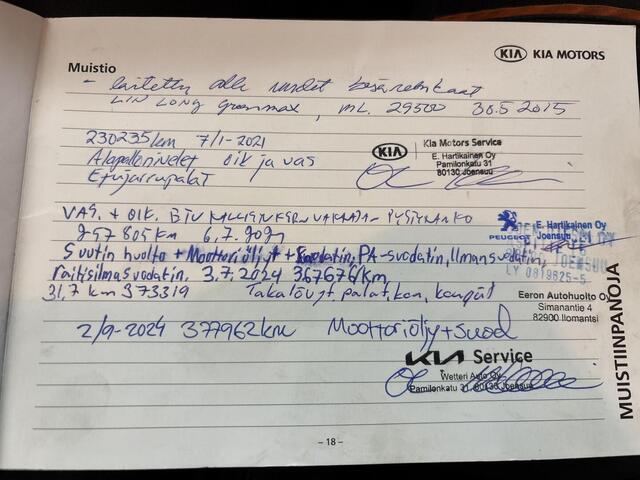 KIA KIA MOTORS
Muistio
- laitettu alle uudet kesärenkaat
LIN LONG Greenmax, ML. 29500 30.5 2015
230235km 7/1-2021
Alapallonivelet oik ja vas
Etujarrupalat
KIA Kia Motors Service
E. Hartikainen Oy
Pamilonkatu 31
80130 Joensuu
VAS. + OIK. ETU
257805 KM 6.7.
PEUGEOT E. Hartikainen Oy
Joensuu
LY 0819825-5
Suutin huolto + Moottoriöljyt + PA-suodatin, Ilmansuodatin,
raitisilmasuodatin. 3.7.2024 367676/km
31,7 km 373319 Takalöyt palat,
Eeron Autohuolto Oy
Simanantie 4
82900 Ilomantsi
2/9-2024 377962km Moottoriöljy+suod
KIA Service
Wetteri Auto Oy
Pamilonkatu 31, 80130 Joensuu
MUISTIINPANOJA
– 18 –